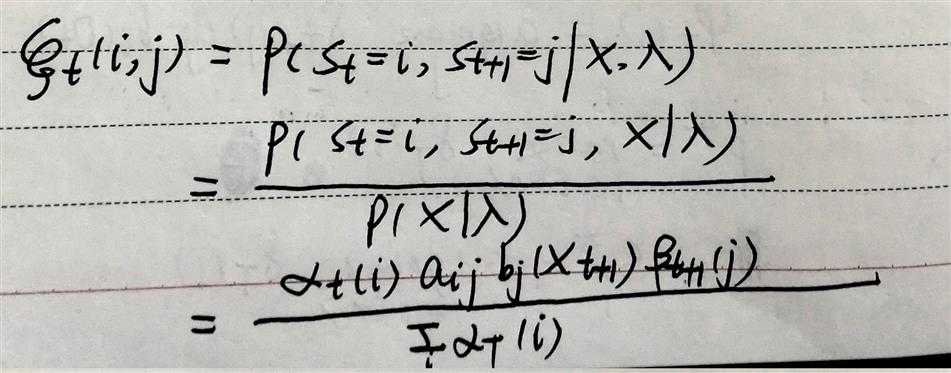 ξt(i,j) = P(St=i, St+1=j|X,λ)
= P(St=i, St+1=j, X|λ)
P(X|λ)
= αt(i) aij bj(Xt+1) βt+1(j)
Σi αT(i)